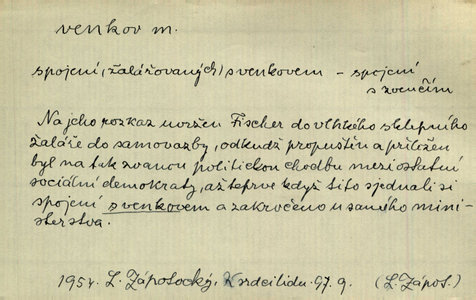 venkov m.
spojení (žalářovaných) s venkovem – spojení
s zvenčím
Na jeho rozkaz uvržen Fischer do vlhkého sklepního
žaláře do samovazby, odkudž propuštěn a přiložen
byl na tak zvanou politickou chodbu mezi ostatní
sociální demokraty, až teprve když tito sjednali si
spojení s venkovem a zakročeno u samého mini-
sterstva.
1954. L. Zápotocký, K srdci lidu. 97. 9. (L. Zápot.)